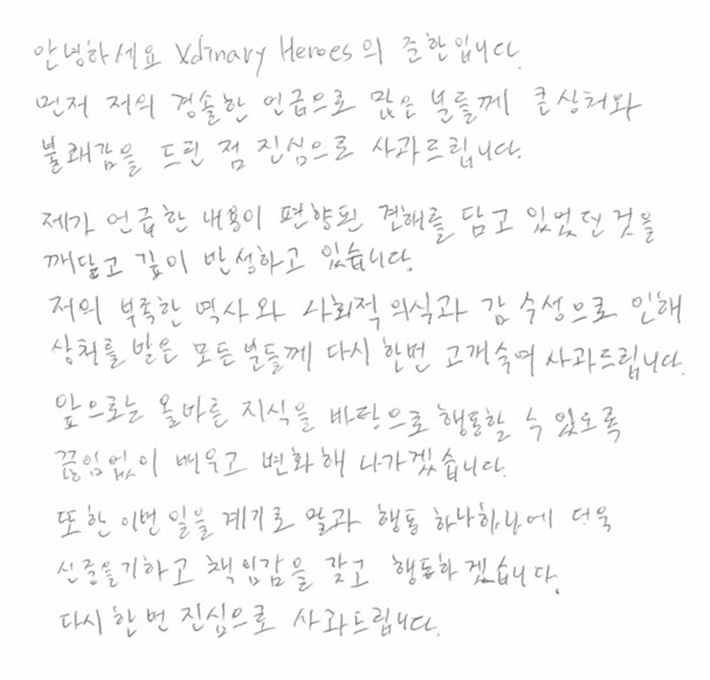 안녕하세요 Xdinary Heroes의 준한입니다.
먼저 저의 경솔한 언급으로 많은 분들께 큰 상처와
불쾌감을 드린 점 진심으로 사과드립니다.
제가 언급한 내용이 편향된 견해를 담고 있었던 것을
깨닫고 깊이 반성하고 있습니다.
저의 부족한 역사와 사회적 의식과 감수성으로 인해
상처를 받은 모든분들께 다시 한번 고개숙여 사과드립니다.
앞으로는 올바른 지식을 바탕으로 행동할 수 있도록
끊임없이 배우고 변화해 나가겠습니다.
또한 이번 일을 계기로 말과 행동 하나하나에 더욱
신중을기하고 책임감을 갖고 행동하겠습니다.
다시 한번 진심으로 사과드립니다.